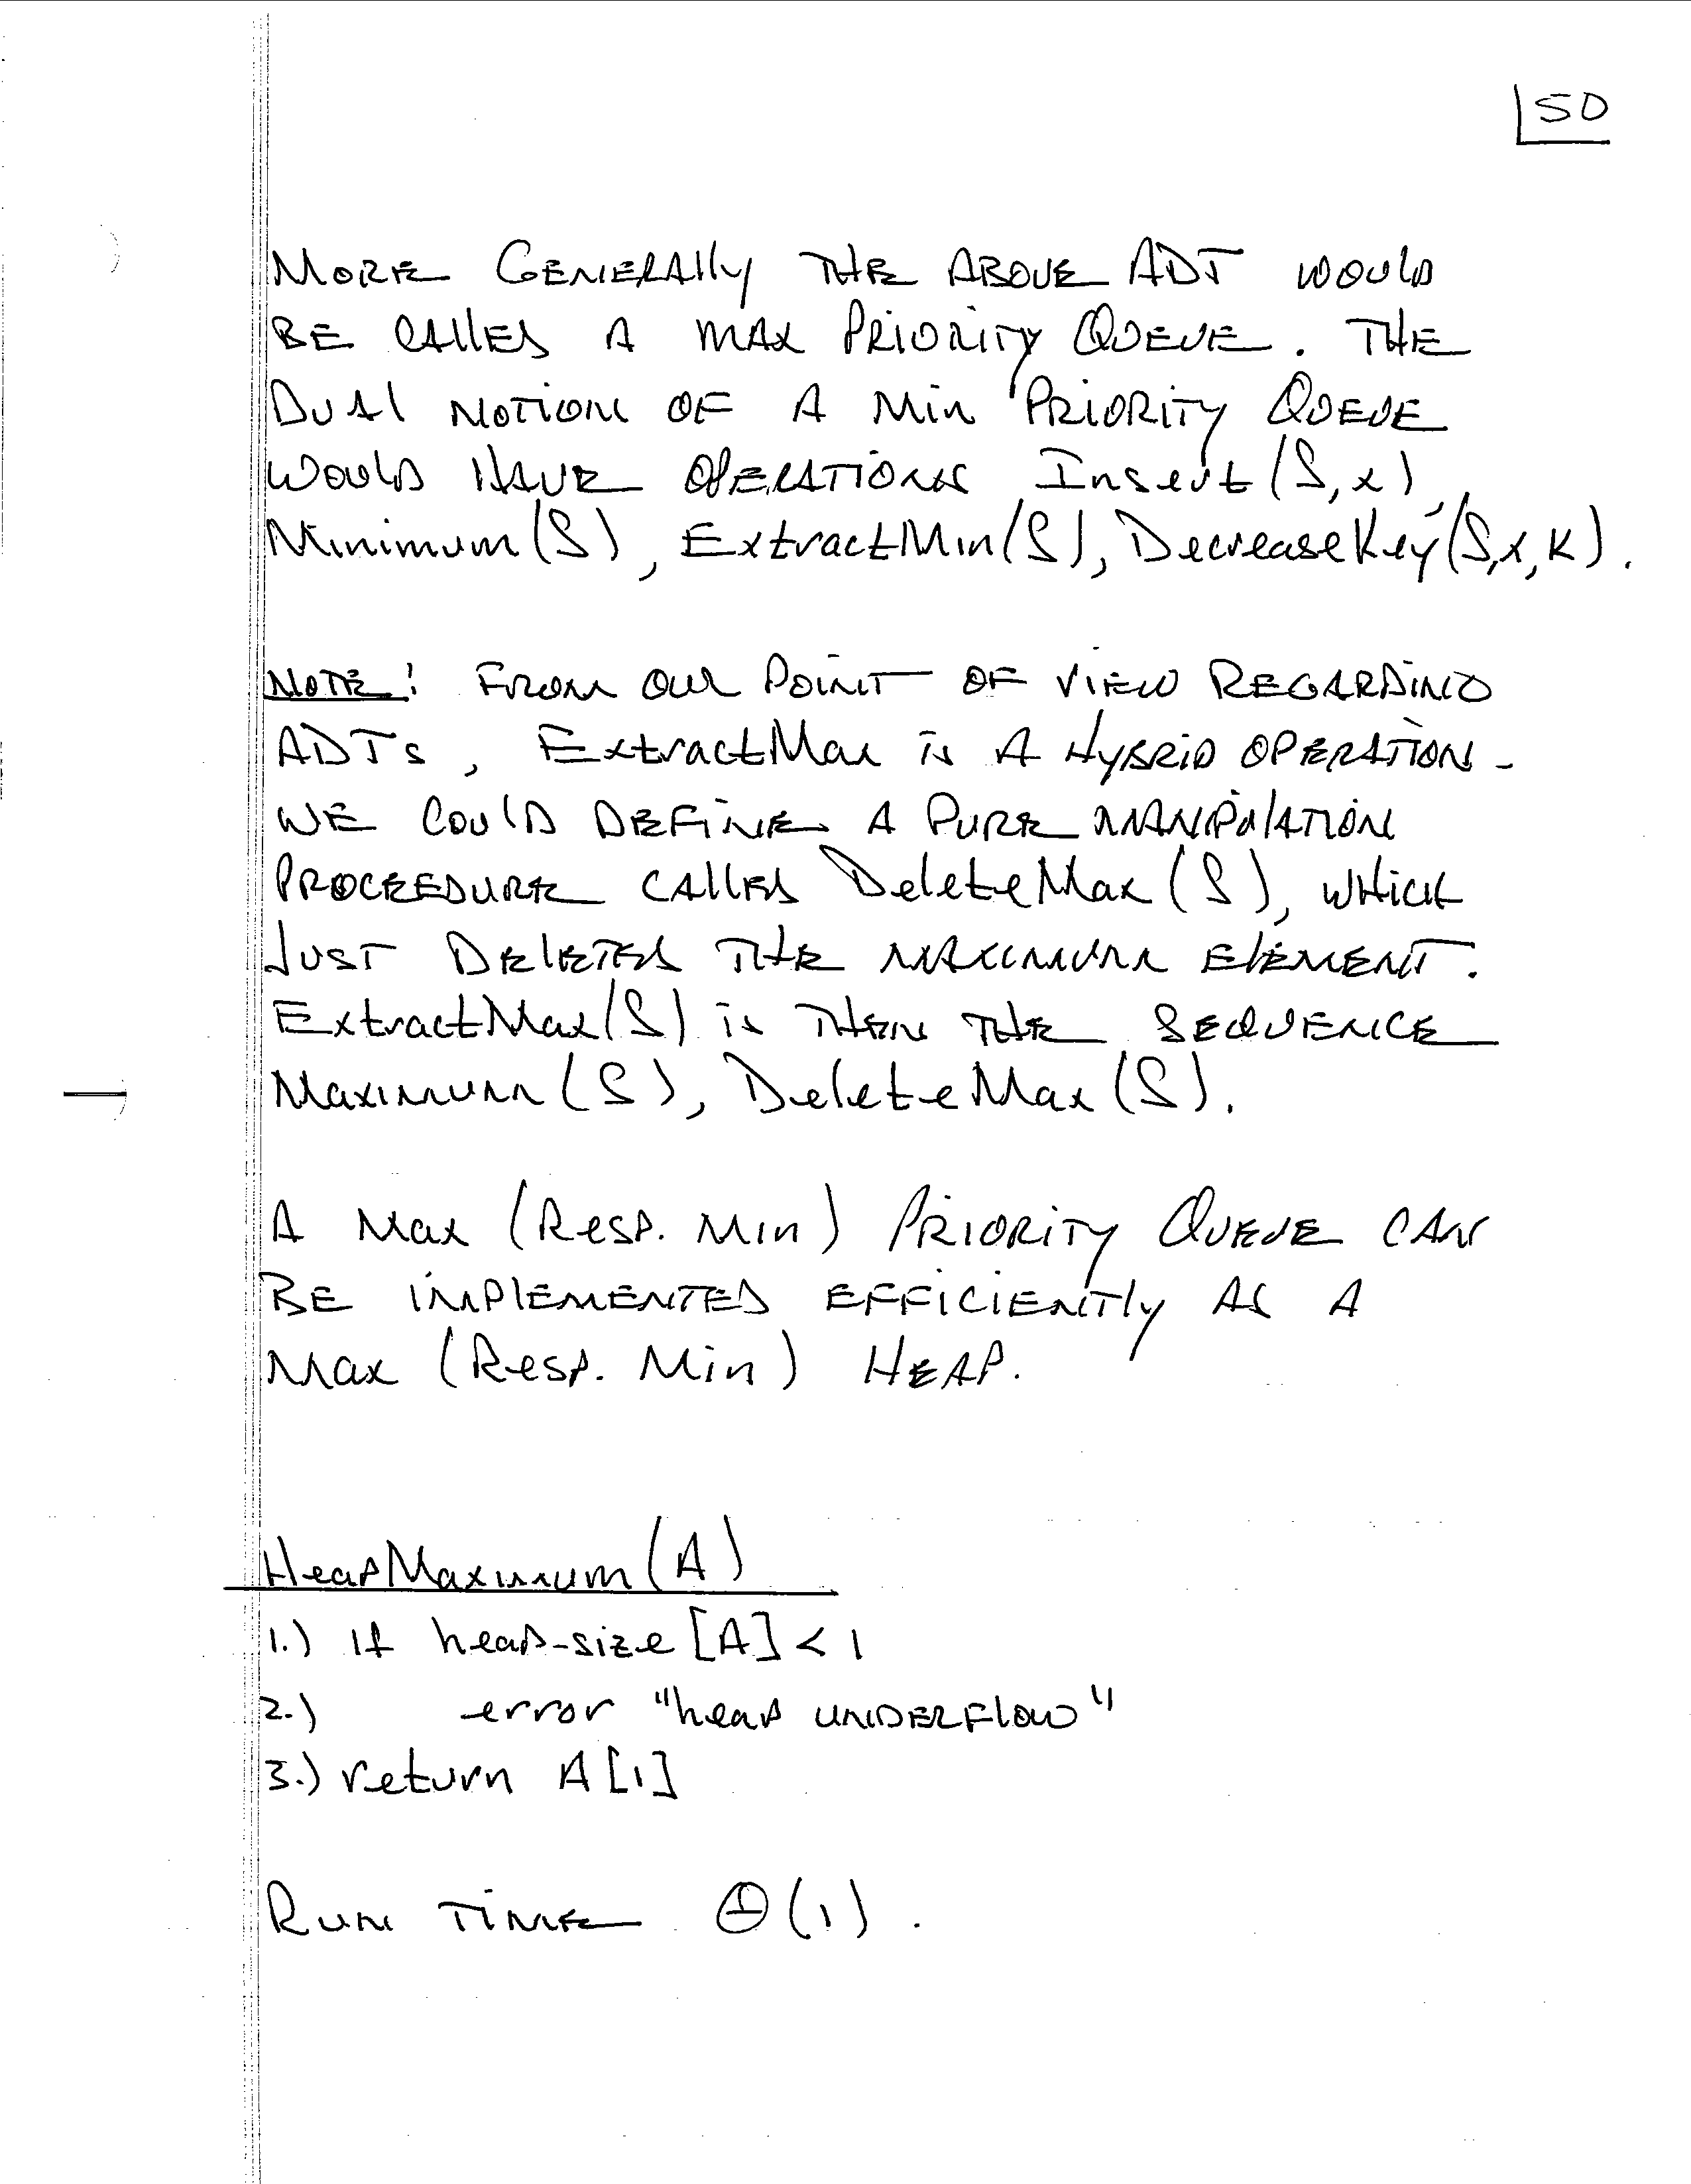 50
More Generally the above ADT would
be called a max Priority Queue. The
Dual notion of a Min Priority Queue
would have operations Insert(S,x),
Minimum(S), ExtractMin(S), DecreaseKey(S,x,k).
Note: From our point of view regarding
ADTs, ExtractMax is a hybrid operation.
We could define a pure manipulation
proceedure called DeleteMax(S), which
just deletes the maximum element.
ExtractMax(S) is then the sequence
Maximum(S), DeleteMax(S).
A Max (Resp. Min) Priority Queue can
be implemented efficiently as a
Max (Resp. Min) Heap.
HeapMaximum(A)
1.) if heap-size[A] < 1
2.) error "heap underflow"
3.) return A[1]
Run time Θ(1).